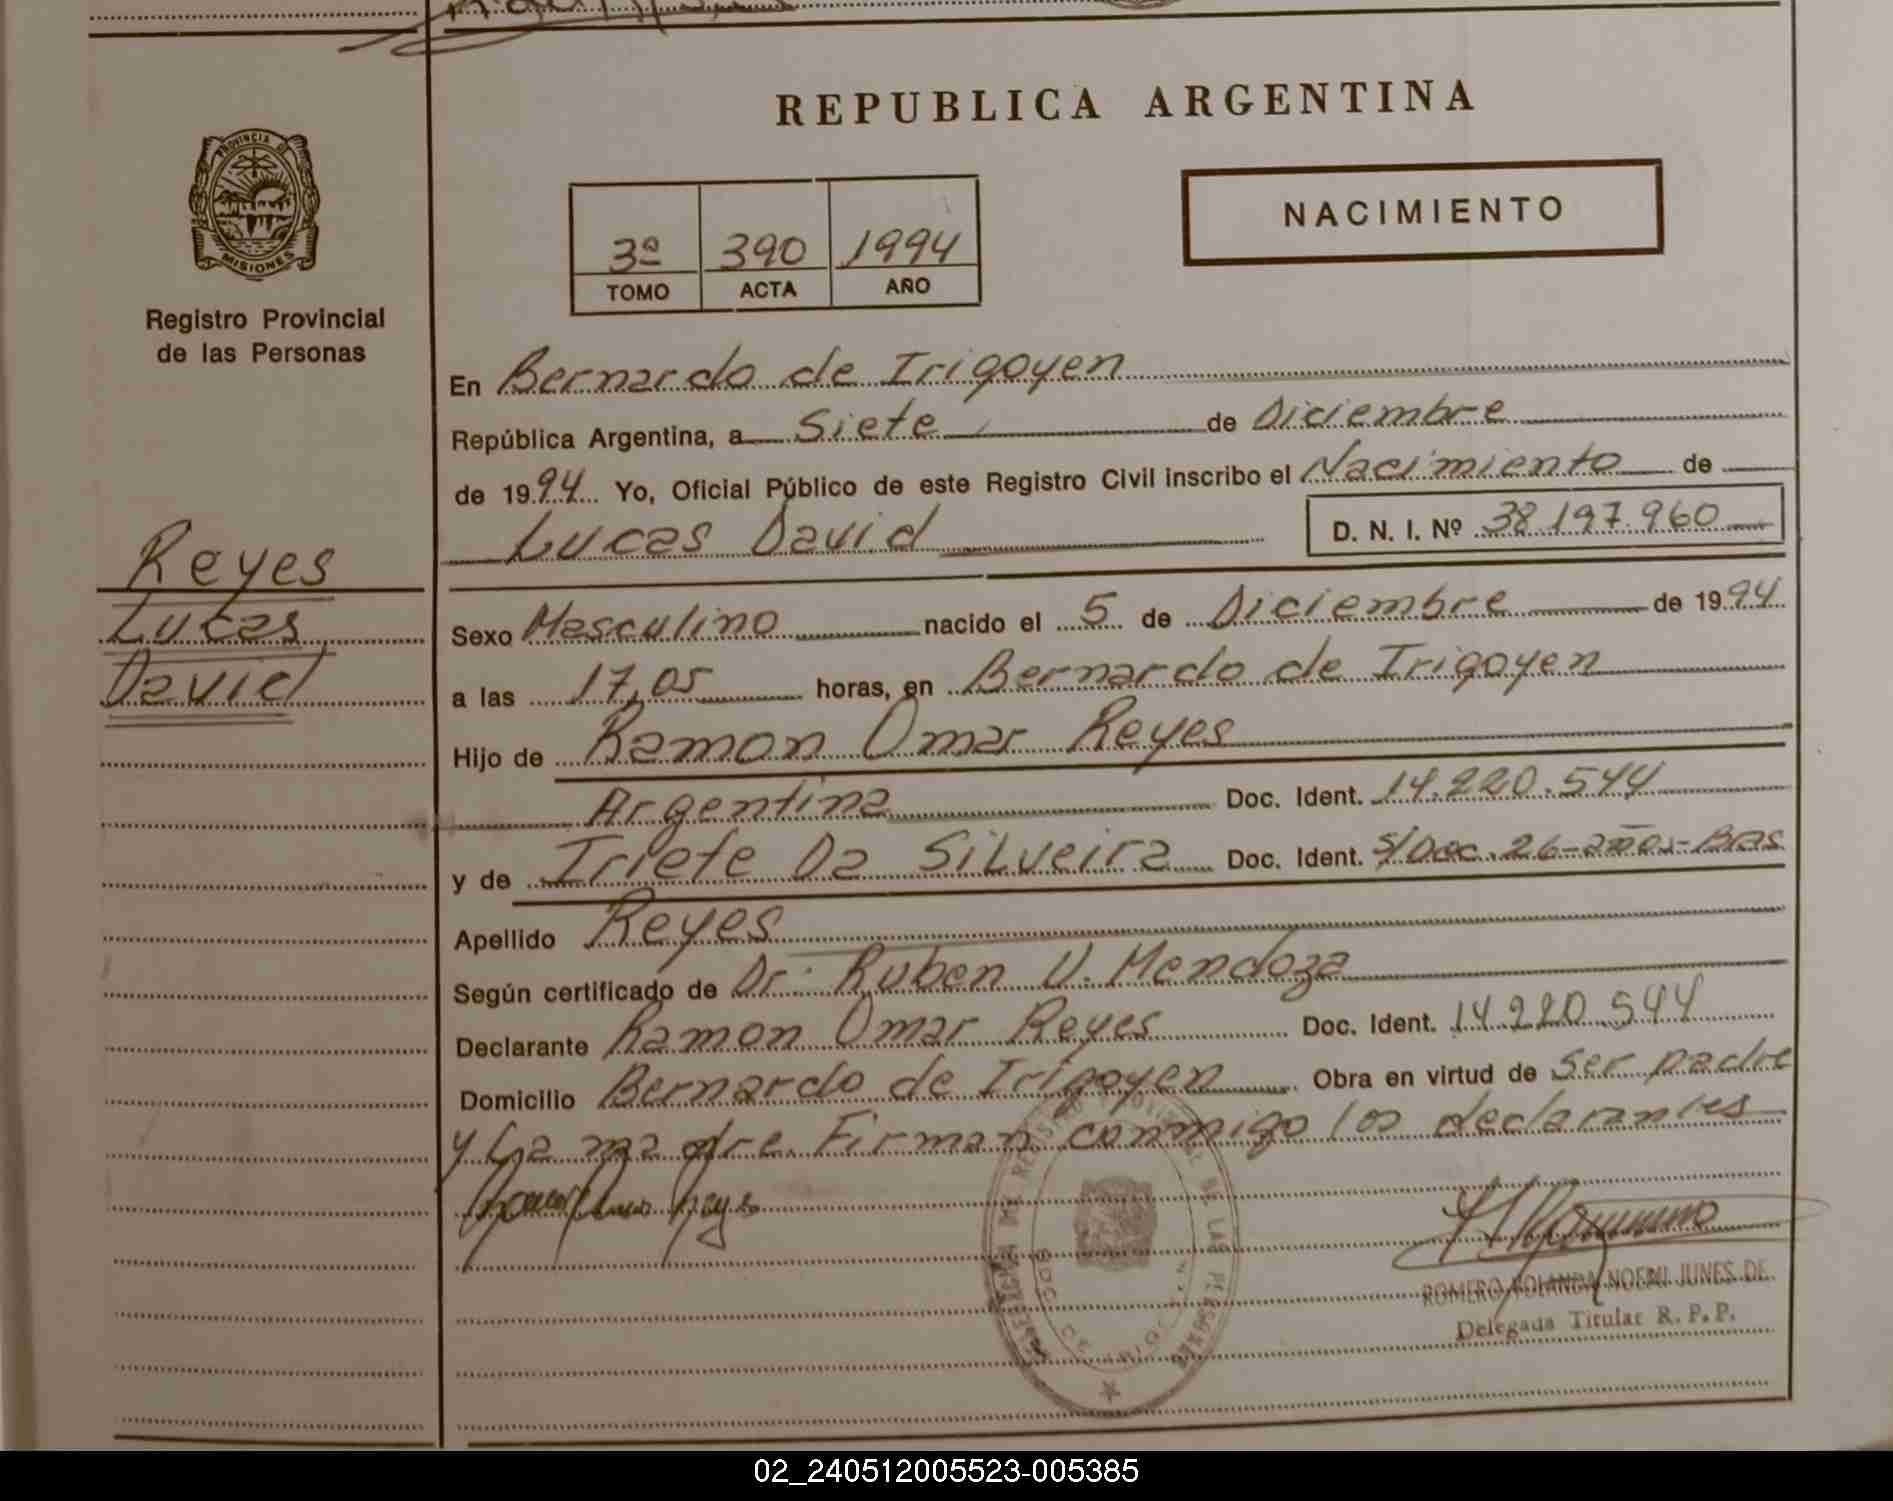 REPUBLICA ARGENTINA
PROVINCIA DE
MISIONES
Registro Provincial
de las Personas
3ª 390 1994
TOMO ACTA AÑO
NACIMIENTO
En Bernardo de Irigoyen
República Argentina, a Siete de Diciembre
de 1994 Yo, Oficial Público de este Registro Civil inscribo el Nacimiento de
Lucas David D. N. I. Nº 38.197.960
Reyes
Lucas
David
Sexo Masculino nacido el 5 de Diciembre de 1994
a las 17,05 horas, en Bernardo de Irigoyen
Hijo de Ramon Omar Reyes
Argentina Doc. Ident. 14.220.544
y de Iriete Da Silveira Doc. Ident. S/Doc. 26-años-Bras
Apellido Reyes
Según certificado de Dr. Ruben V. Mendoza
Declarante Ramon Omar Reyes Doc. Ident. 14.220.544
Domicilio Bernardo de Irigoyen Obra en virtud de ser padre
y La madre. Firman conmigo los declarantes
ROMERO YOLANDA NOEMI JUNES DE
Delegada Titular R. P. P.
02_240512005523-005385